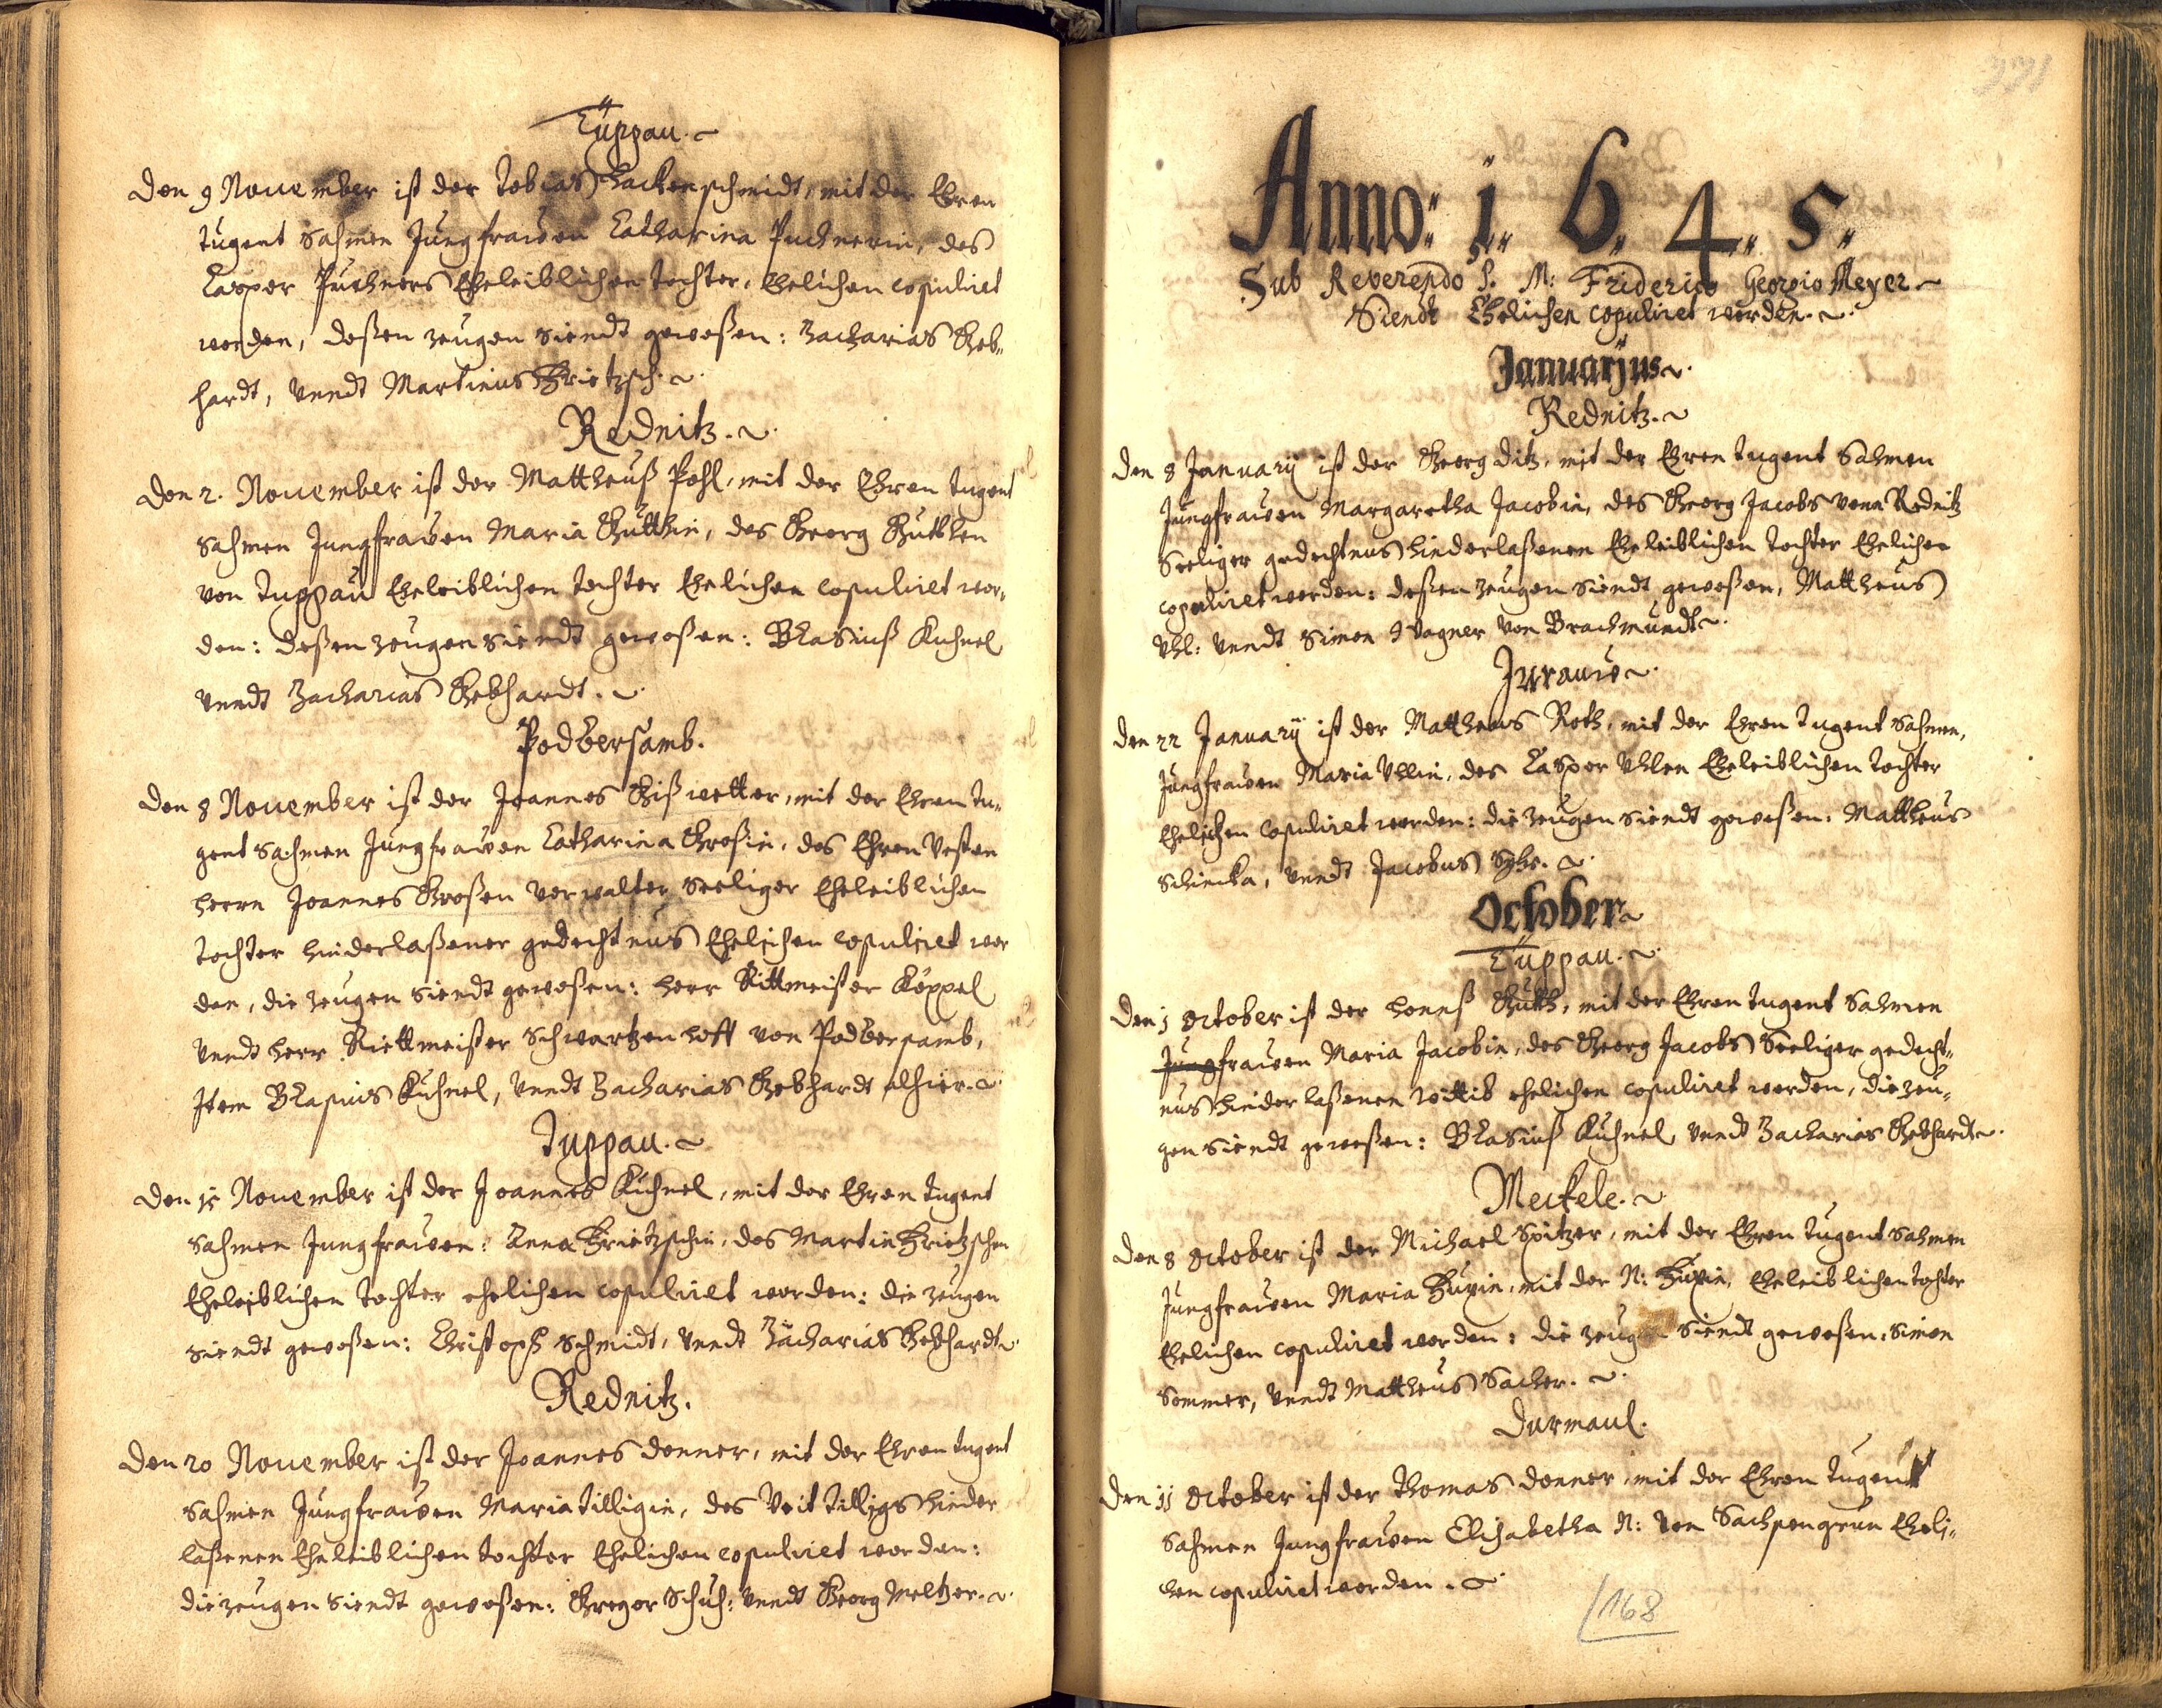 Tüppau.
Den 9 Nouember ist der Tobias Hackenschmidt, mit der Ehren
tugent sahmen Jungfrawen Catharina Puchnerin, des
Casper Puchners Eheleiblichen tochter, Ehelichen copuliret
worden, deßen zeugen siendt geweßen: Zacharias Geb„
hardt, vundt Martinus Frietzsch.
Rednitz.
Den 2. Nouember ist der Mattheuß Pohl, mit der Ehren tugent
sahmen Jungfrawen Maria Gütthin, des Georg Gutthen
von Tuppau Eheleiblichen tochter Ehelichen copuliret wor„
den: deßen zeugen siendt geweßen: Blasiuß Kuhnel
vndt Zacharias Gebhardt.
Podbersamb.
Den 8 Nouember ist der Joannes Gißvetter, mit der Ehren tu„
gent sahmen Jungfrawen Catharina Großin, des Ehren Vesten
Herrn Joannes Großen Verwalter seeliger Eheleiblichen
tochter hinderlaßener gedechtnus Ehelichen copuliret wor
den, die zeugen siendt geweßen: Herr Rittmeister Köppel
vndt Herr Riettmeister Schwartzenhoff von Podbersamb,
Item Blasius Kuhnel, vndt Zacharias Gebhardt alhier.
Tuppau.
Den 15 Nouember ist der Joannes Kuhnel, mit der Ehren tugent
sahmen Jungfrawen: Anna Frietzschin, des Martin Frietzschen
Eheleiblichen tochter ehelichen copuliret worden: die zeugen
siendt geweßen: Christoph Schmidt, vndt Zacharias Gebhardt.
Rednitz.
Den 20 Nouember ist der Joannes Donner, mit der Ehren tugent
sahmen Jungfrawen Maria Tilligin, des Veit Tilligs hinder
laßenen Eheleiblichen tochter Ehelichen copuliret worden:
die zeugen siendt geweßen: Gregor Schuh: vndt Georg Meltzer.
331
Anno: 1. 6. 4. 5.
Sub Reverendo P. M: Friderico Georgio Meyer
Siendt Ehelichen copuliret worden.
Januarjus.
Rednitz.
Den 8 Januarij ist der Georg Ditz, mit der Ehren tugent sahmen
Jungfrawen Margaretha Jacobin, des Georg Jacobs vonn Rednitz
seeliger gedechtnus hinderlaßenen Eheleiblichen tochter Ehelichen
copuliret worden: deßen zeugen siendt geweßen, Mattheus
Vhl: vndt Simon Wagner von Brachmundt.
Jurauw.
Den 22 Januarij ist der Mattheus Roth, mit der Ehren tugent sahmen,
Jungfrawen Maria Vhlin, des Casper Vhlen Eheleiblichen tochter
Ehelichen copuliret worden: die zeugen siendt geweßen: Mattheus
Schincka, vndt Jacobus
October
Tüppau.
Den 1 October ist der Honnß Güth, mit der Ehren tugent sahmen
Jungfrawen Maria Jacobin, des Georg Jacobs seeliger gedecht„
nus hinder laßenen wittib ehelichen copuliret worden, die zeu„
gen siendt geweßen: Blasiuß Kuhnel vndt Zacharias Gebhardt.
Meckele.
Den 8 October ist der Michael Spitzer, mit der Ehren tugent sahmen
Jungfrawen Maria mit der N: Eheleiblichen tochter
Ehelichen copuliret worden: die zeugen siendt geweßen: Simon
Sommer, vndt Mattheus Sacher.
Durmaul.
Den 11 October ist der Thomas Donner, mit der Ehren tugent
sahmen Jungfrawen Elisabetha N: von Sachsengrün Eheli„
hen copuliret worden.
168